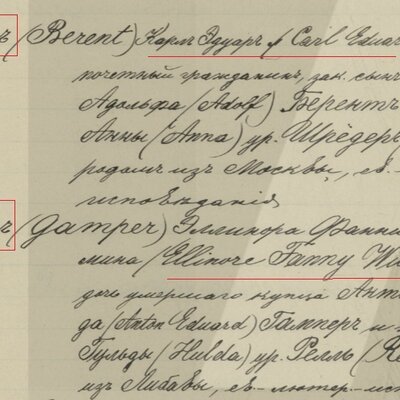 ъ (Berent) Карлъ Эдуаръ / Carl Eduar
почетный гражданинъ, зак. сынъ
Адольфа (Adolf) Берентъ
Анны (Anna) ур. Шрёдеръ
родомъ изъ Москвы, ев.-
исповѣданія
ъ (Gamper) Эллинора Фанни
мина (Ellinore Fanny Wil
дочь умершаго купца Анто
да (Anton Eduard) Гамперъ и
Гульды (Hulda) ур. Релль (Re
изъ Либавы, ев.-лютер.-исп